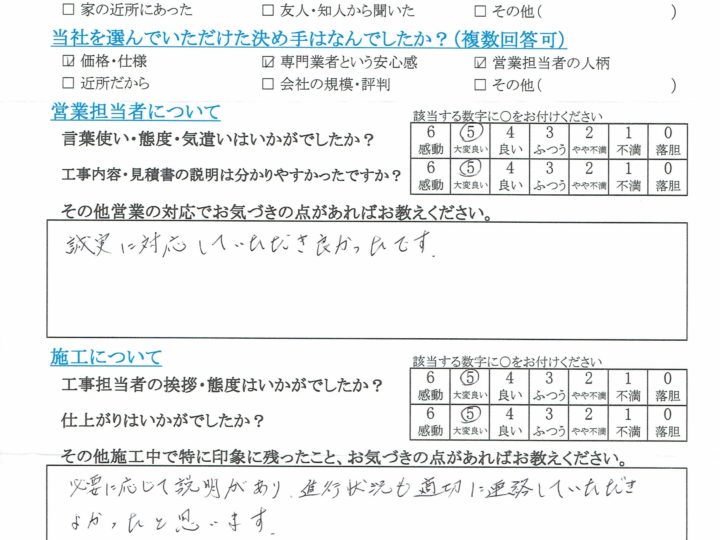 □ 家の近所にあった □ 友人・知人から聞いた □ その他( )
当社を選んでいただけた決め手はなんでしたか？(複数回答可)
☑ 価格・仕様 ☑ 専門業者という安心感 ☑ 営業担当者の人柄
□ 近所だから □ 会社の規模・評判 □ その他( )
営業担当者について
該当する数字に○をお付けください
言葉使い・態度・気遣いはいかがでしたか？
6 5 4 3 2 1 0
感動 大変良い 良い ふつう やや不満 不満 落胆
工事内容・見積書の説明は分かりやすかったですか？
6 5 4 3 2 1 0
感動 大変良い 良い ふつう やや不満 不満 落胆
その他営業の対応でお気づきの点があればお教えください。
誠実に対応していただき良かったです.
施工について
該当する数字に○をお付けください
工事担当者の挨拶・態度はいかがでしたか？
6 5 4 3 2 1 0
感動 大変良い 良い ふつう やや不満 不満 落胆
仕上がりはいかがでしたか？
6 5 4 3 2 1 0
感動 大変良い 良い ふつう やや不満 不満 落胆
その他施工中で特に印象に残ったこと、お気づきの点があればお教えください。
必要に応じて説明があり、進行状況も適切に連絡していただき
よかったと思います.